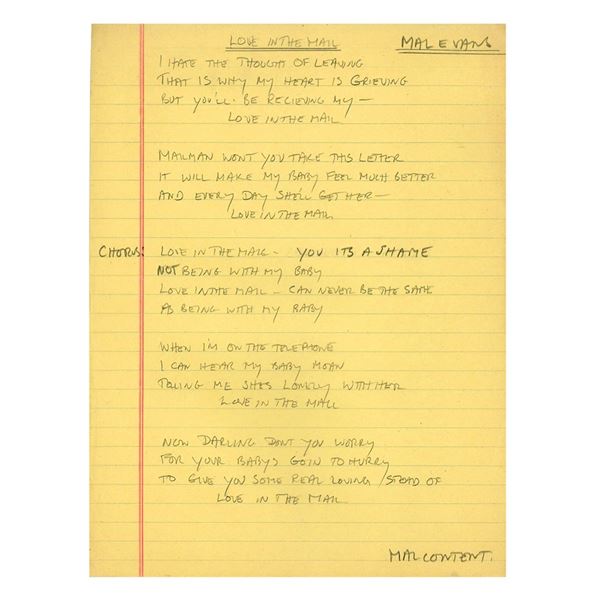 LOVE IN THE MAIL
MAL EVANS
I HATE THE THOUGHT OF LEAVING
THAT IS WHY MY HEART IS GRIEVING
BUT YOU'LL BE RECIEVING MY —
LOVE IN THE MAIL
MAILMAN WONT YOU TAKE THIS LETTER
IT WILL MAKE MY BABY FEEL MUCH BETTER
AND EVERY DAY SHE'LL GET HER —
LOVE IN THE MAIL
CHORUS: LOVE IN THE MAIL - YOU ITS A SHAME
NOT BEING WITH MY BABY
LOVE IN THE MAIL - CAN NEVER BE THE SAME
AS BEING WITH MY BABY
WHEN I'M ON THE TELEPHONE
I CAN HEAR MY BABY MOAN
TELLING ME SHES LONELY WITH HER
LOVE IN THE MAIL
NOW DARLING DONT YOU WORRY
FOR YOUR BABYS GOIN TO HURRY
TO GIVE YOU SOME REAL LOVING STEAD OF
LOVE IN THE MAIL
MAL CONTENT.